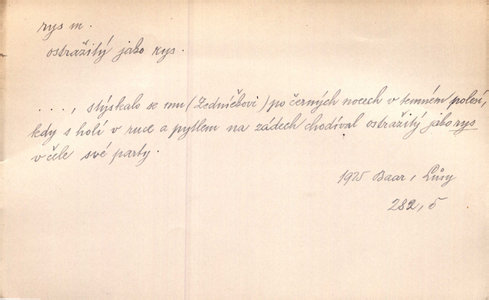 rys m.
ostražitý jako rys.
...., stýskalo se mu (Zedníčkovi) po černých nocech v temném polesí,
kdy s holí v ruce a pytlem na zádech chodíval ostražitý jako rys
v čele své party.
1975 Baar, Lůsy
282, 5